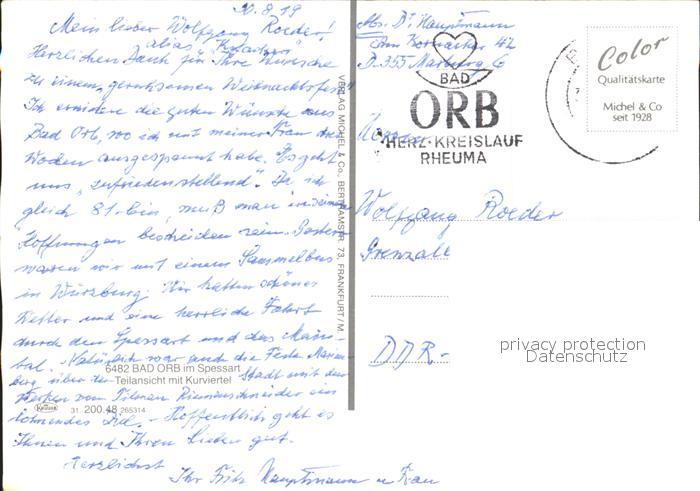 20.8.79
Mein lieber Wolfgang Roeder!
alias
Herzlichen Dank für Ihre Wünsche
zu einem geruhsamen Weihnachtsfest
Ich erwidere die guten Wünsche aus
Bad Orb, wo ich mit meiner Frau drei
Wochen ausgespannt habe. Es geht
uns „zufriedenstellend". Da ich
gleich 81 bin, muß man in seinen
Hoffnungen bescheiden sein. Gestern
waren wir mit einem Sammelbus
in Würzburg. Wir hatten schönes
Wetter und eine herrliche Fahrt
durch den Spessart und das Main-
tal. Natürlich war auch die Feste Marien-
6482 BAD ORB im Spessart
berg über der Stadt mit den
Teilansicht mit Kurviertel
Werken von Tilman Riemenschneider ein
Krüger 31. 200.48 265314
lohnendes Ziel. - Hoffentlich geht es
Ihnen und Ihren Lieben gut.
Herzlichst
Ihr Fritz Hauptmann u Frau
VERLAG MICHEL & Co., BERTRAMSTR. 73, FRANKFURT/M.
Abs. Dr. Hauptmann
Am Kornacker 42
D. 355 Marburg 6
BAD
ORB
HERZ·KREISLAUF
RHEUMA
Color
Qualitätskarte
Michel & Co
seit 1928
Herrn
Wolfgang Roeder
DDR-
privacy protection
Datenschutz